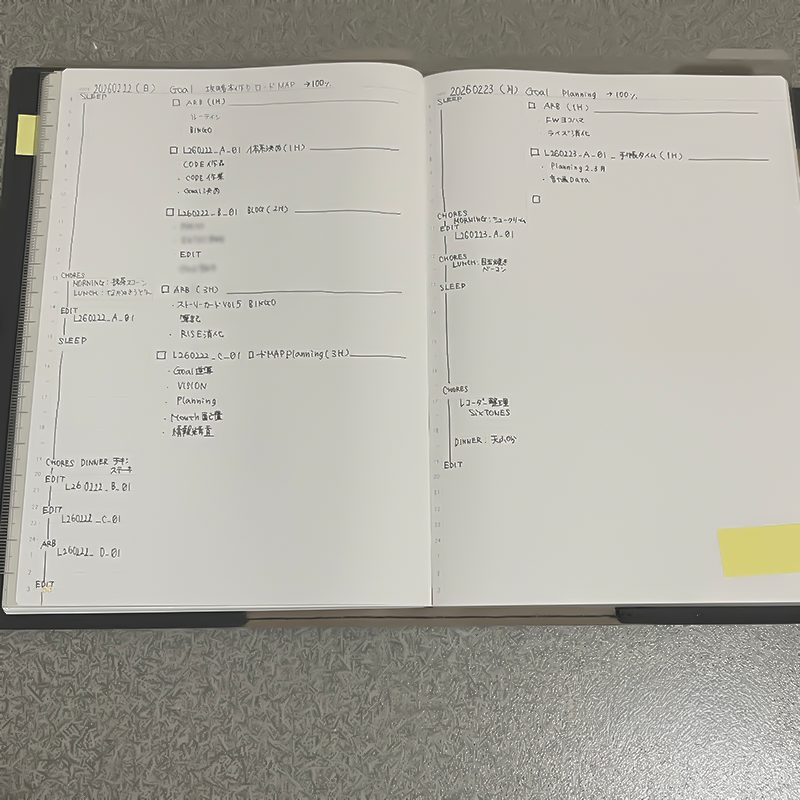 20260222(日) Goal 攻略本作り ロードMAP →100%
SLEEP
□ ARB (1H)
ルーティン
BINGO
□ L260222_A_01 (1H)
CODE作品
・CODE作業
・Goal決め
□ L260222_B_01 BLOG (2H)
EDIT
CHORES
MORNING: 抹茶スコーン
LUNCH:
□ ARB (3H)
・ストーリーカード VOL5 BINGO
・RISE消化
EDIT
L260222_A_01
SLEEP
□ L260222_C_01 ロードMAP Planning (3H)
・Goal
・VISION
・Planning
・Month
・情報精査
CHORES DINNER チキン
ステーキ
EDIT
L260222_B_01
EDIT
L260222_C_01
ARB
L260222_D_01
EDIT
20260223(月) Goal Planning →100%
SLEEP
□ ARB (1H)
・FWヨコハマ
・ライズ消化
□ L260223_A_01 _ 手帳タイム (1H)
・Planning 2.3月
・Data
□
CHORES
MORNING: シュークリーム
EDIT
L260223_A_01
CHORES
LUNCH: 目玉焼き
ベーコン
SLEEP
CHORES
レコーダー整理
SixTONES
DINNER:
EDIT